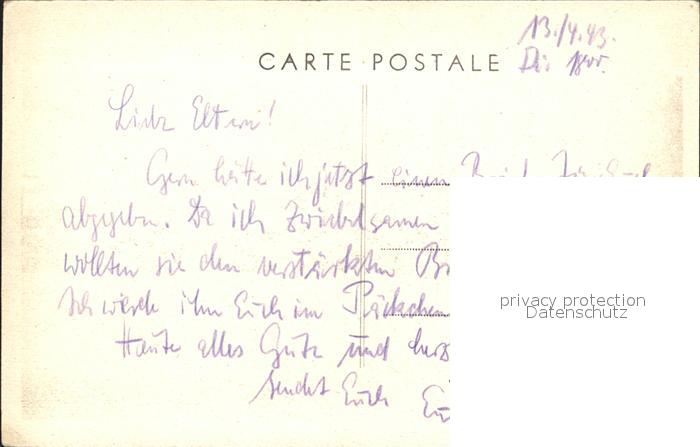 13./4.43.
CARTE POSTALE
Liebe Eltern!
Gern hätte ich jetzt einen Brief für Euch
abgegeben. Da ich Zwiebelsamen
wollten sie den verstärkten
Ich werde ihn Euch im Päckchen
Heute alles Gute und herz
sendet Euch
privacy protection
Datenschutz